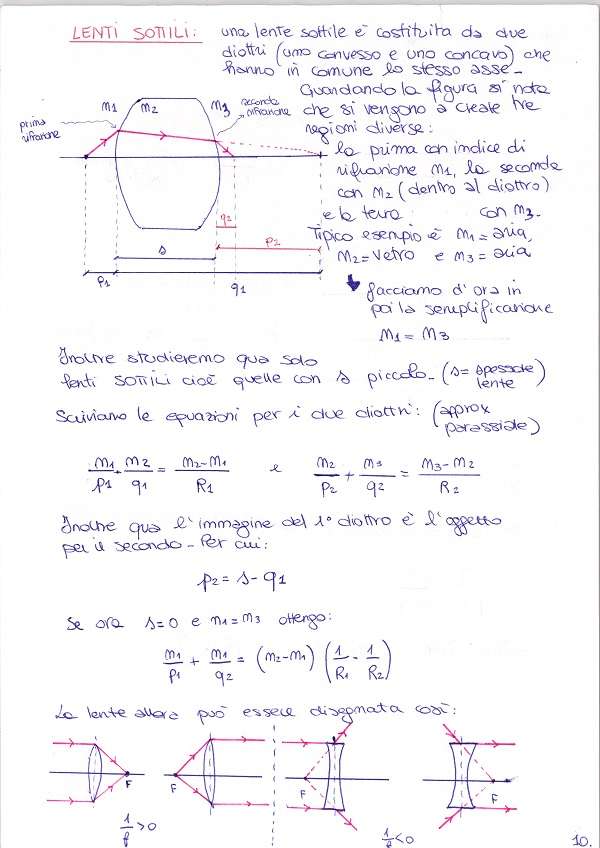 LENTI SOTTILI: una lente sottile è costituita da due
diottri (uno convesso e uno concavo) che
hanno in comune lo stesso asse-
Guardando la figura si nota
che si vengono a creare tre
regioni diverse:
la prima con indice di
rifrazione n1, la seconda
con n2 (dentro al diottro)
e la terza con n3-
Tipico esempio è n1=aria,
n2=vetro e n3=aria
facciamo d'ora in
poi la semplificazione
n1=n3
prima
rifrazione
n1
n2
n3
seconda
rifrazione
q2
p2
s
p1
q1
Inoltre studieremo qua solo
lenti SOTTILI cioè quelle con s piccolo- (s= spessore
lente)
Scriviamo le equazioni per i due diottri: (approx
parassiale)
n1/p1 + n2/q1 = n2-n1/R1 e n2/p2 + n3/q2 = n3-n2/R2
Inoltre qua l'immagine del 1° diottro è l'oggetto
per il secondo- Per cui:
p2 = s-q1
Se ora s=0 e n1=n3 ottengo:
n1/p1 + n1/q2 = (n2-n1) (1/R1 - 1/R2)
La lente allora può essere disegnata così:
F
F
F
F
1/f>0
1/f<0
10.